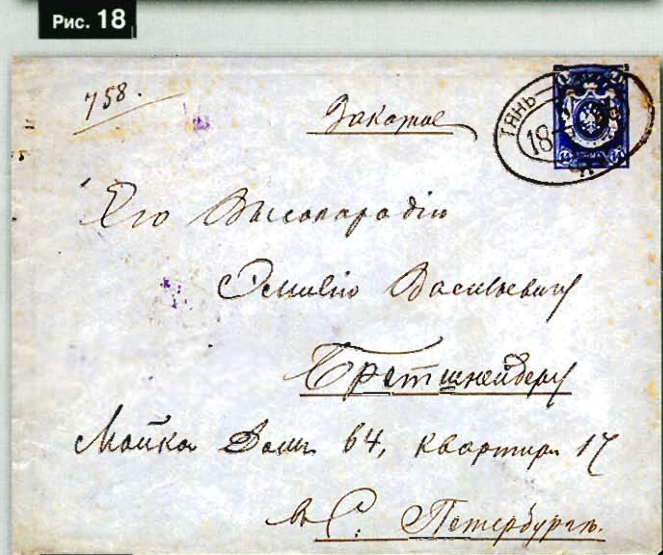 Рис. 18
758.
Заказное
ТЯНЬ
18
Его Высокородiю
Эмилiю Васильевичу
Бретшнейдеру
Мойка Домъ 64, квартира 17
въ С. Петербургѣ.